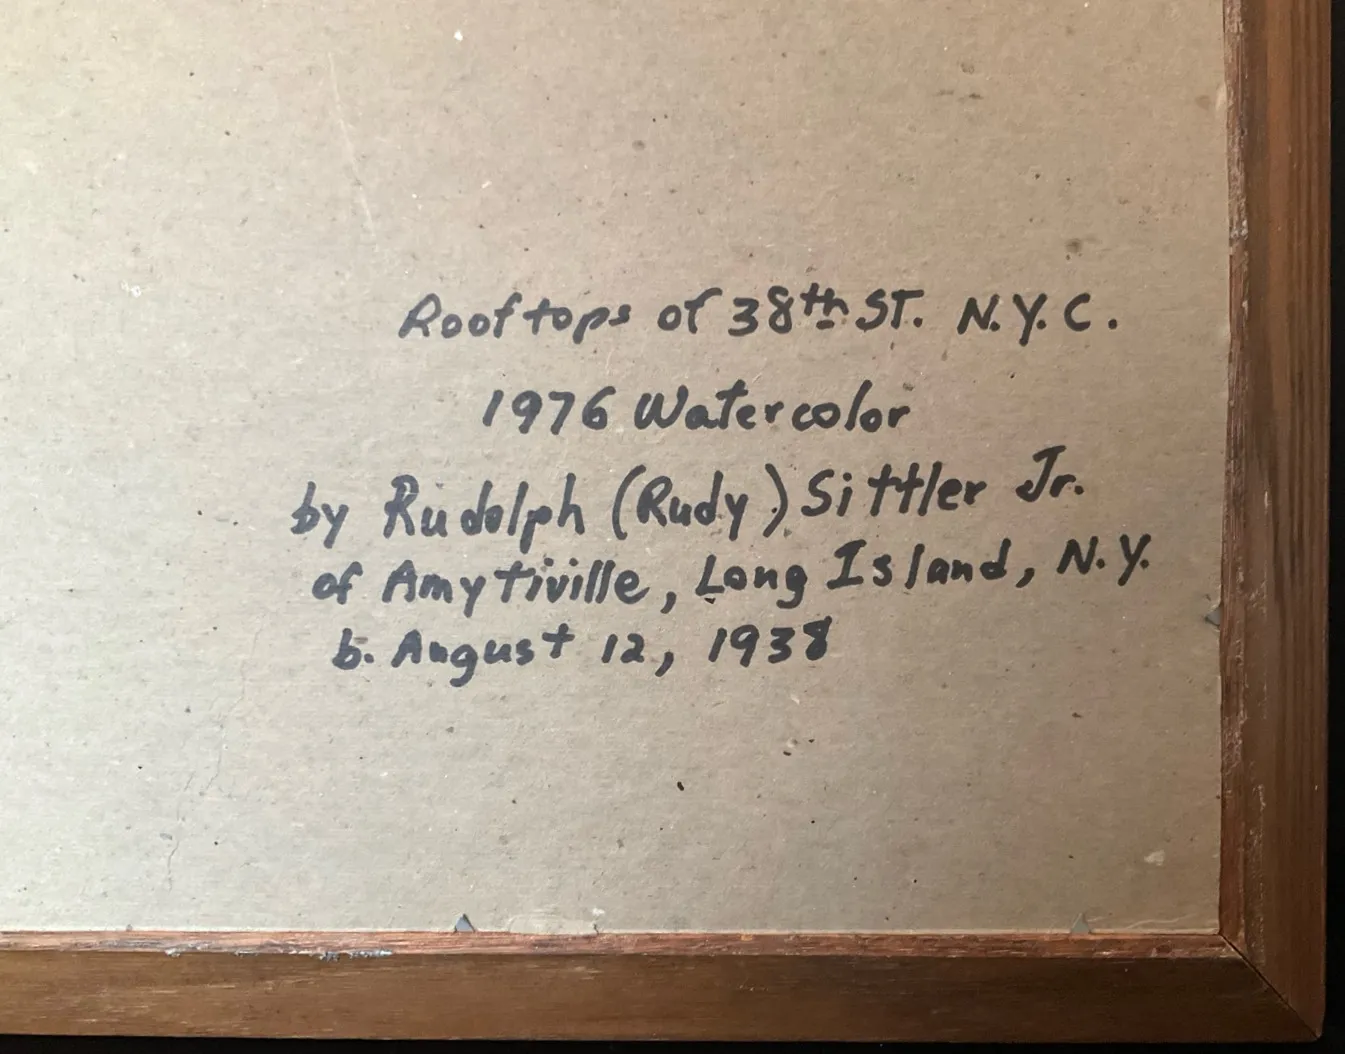 Rooftops of 38th ST. N.Y.C.
1976 Watercolor
by Rudolph (Rudy) Sittler Jr.
of Amytiville, Long Island, N.Y.
b. August 12, 1938